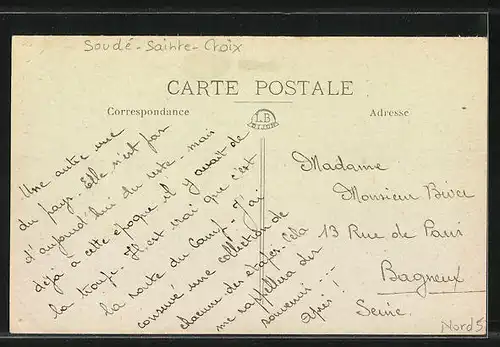 Soudé-Sainte-Croix
CARTE POSTALE
Correspondance
LB
DIJON
Adresse
Une autre vue
du pays. Elle n'est pas
d'aujourd'hui du reste - mais
déjà à cette époque il y avait de
la troupe. Il est vrai que c'est
la route du Camp. J'ai
conservé une collection de
chacune des étapes. Cela
me rappellera des
souvenirs ....
Après !
Madame
Monsieur
13 Rue de Paris
Bagneux
Seine.
Nord 5